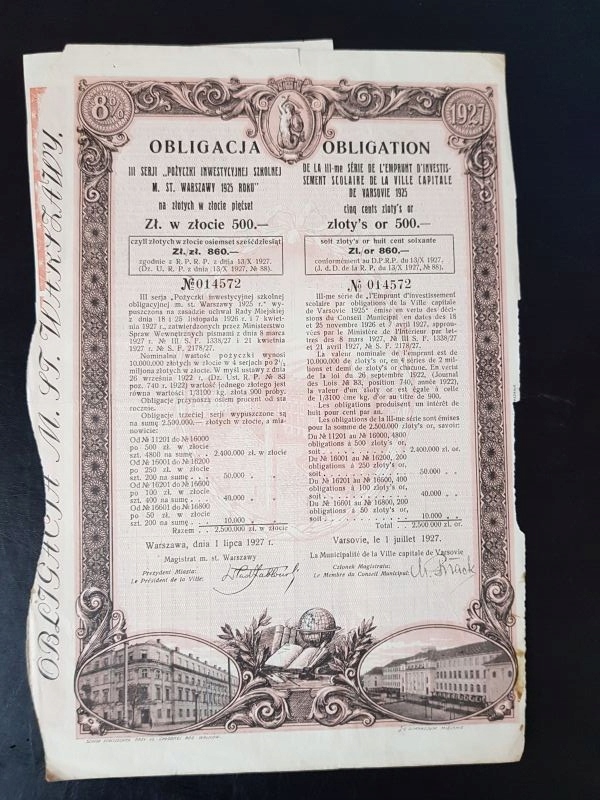 8%
1927
OBLIGACJA
III SERJI „POŻYCZKI INWESTYCYJNEJ SZKOLNEJ
M. ST. WARSZAWY 1925 ROKU"
na złotych w złocie pięćset
Zł. w złocie 500.—
czyli złotych w złocie osiemset sześćdziesiąt
Zł. zł. 860.—
zgodnie z R. P. R. P. z dnia 13/X 1927.
(Dz. U. R. P. z dnia 13/X 1927, № 88).
№ 014572
III serja „Pożyczki inwestycyjnej szkolnej
obligacyjnej m. st. Warszawy 1925 r." wy-
puszczona na zasadzie uchwał Rady Miejskiej
z dnia 18 i 25 listopada 1926 r. i 7 kwiet-
nia 1927 r., zatwierdzonych przez Ministerstwo
Spraw Wewnętrznych pismami z dnia 8 marca
1927 r. № III S. F. 1338/27 i 21 kwietnia
1927 r. № S. F. 2178/27.
Nominalna wartość pożyczki wynosi
10.000.000 złotych w złocie w 4 serjach po 2½
miljona złotych w złocie. W myśl ustawy z dnia
26 września 1922 r. (Dz. Ust. R. P. № 83
poz. 740 r. 1922) wartość jednego złotego jest
równa wartości 1/3100 kg. złota 900 próby.
Obligacje przynoszą osiem procent od sta
rocznie.
Obligacje trzeciej serji wypuszczone są
na sumę 2.500.000.— złotych w złocie, a mia-
nowicie:
Od № 11201 do № 16000
po 500 zł. w złocie
szt. 4800 na sumę . . . 2.400.000 zł. w złocie
Od № 16001 do № 16200
po 250 zł. w złocie
szt. 200 na sumę . . . 50.000 „ „
Od № 16201 do № 16600
po 100 zł. w złocie
szt. 400 na sumę . . . 40.000 „ „
Od № 16601 do № 16800
po 50 zł. w złocie
szt. 200 na sumę . . . 10.000 „ „
Razem . . 2.500.000 zł. w złocie
Warszawa, dnia 1 lipca 1927 r.
Magistrat m. st. Warszawy
Prezydent Miasta:
Le Président de la Ville:
OBLIGATION
DE LA III-me SÉRIE DE L'EMPRUNT D'INVESTIS-
SEMENT SCOLAIRE DE LA VILLE CAPITALE
DE VARSOVIE 1925
cinq cents zloty's or
zloty's or 500.—
soit zloty's or huit cent soixante
Zl. or 860.—
conformément au D.P.R.P. du 13/X 1927.
(J. d. D. de la R. P. du 13/X 1927, № 88).
№ 014572
III-me série de „l'Emprunt d'investissement
scolaire par obligations de la Ville Capitale
de Varsovie 1925" émise en vertu des déci-
sions du Conseil Municipal en dates des 18 et
25 novembre 1926 et 7 avril 1927, approu-
vées par le Ministère de l'Intérieur par let-
tres des 8 mars 1927, № III S. F. 1338/27
et 21 avril 1927, № S. F. 2178/27.
La valeur nominale de l'emprunt est de
10.000.000 de zloty's or, en 4 séries de 2 mil-
lions et demi de zloty's or chacune. En vertu
de la loi du 26 septembre 1922, (Journal
des Lois № 83, position 740, année 1922),
la valeur d'un zloty or est égale à celle
de 1/3100 kg. d'or au titre de 900.
Les obligations produisent un intérêt de
huit pour cent par an.
Les obligations de la III-me série sont émises
pour la somme de 2.500.000 zloty's or, savoir:
Du № 11201 au № 16000, 4800
obligations à 500 zloty's or,
soit . . . 2.400.000 zl. or.
Du № 16001 au № 16200, 200
obligations à 250 zloty's or,
soit . . . 50.000 „ „
Du № 16201 au № 16600, 400
obligations à 100 zloty's or,
soit . . . 40.000 „ „
Du № 16601 au № 16800, 200
obligations à 50 zloty's or,
soit . . . 10.000 „ „
Total . . 2.500.000 zl. or.
Varsovie, le 1 juillet 1927.
La Municipalité de la Ville capitale de Varsovie
Członek Magistratu:
Le Membre du Conseil Municipal:
OBLIGACJA M. ST. WARSZAWY.